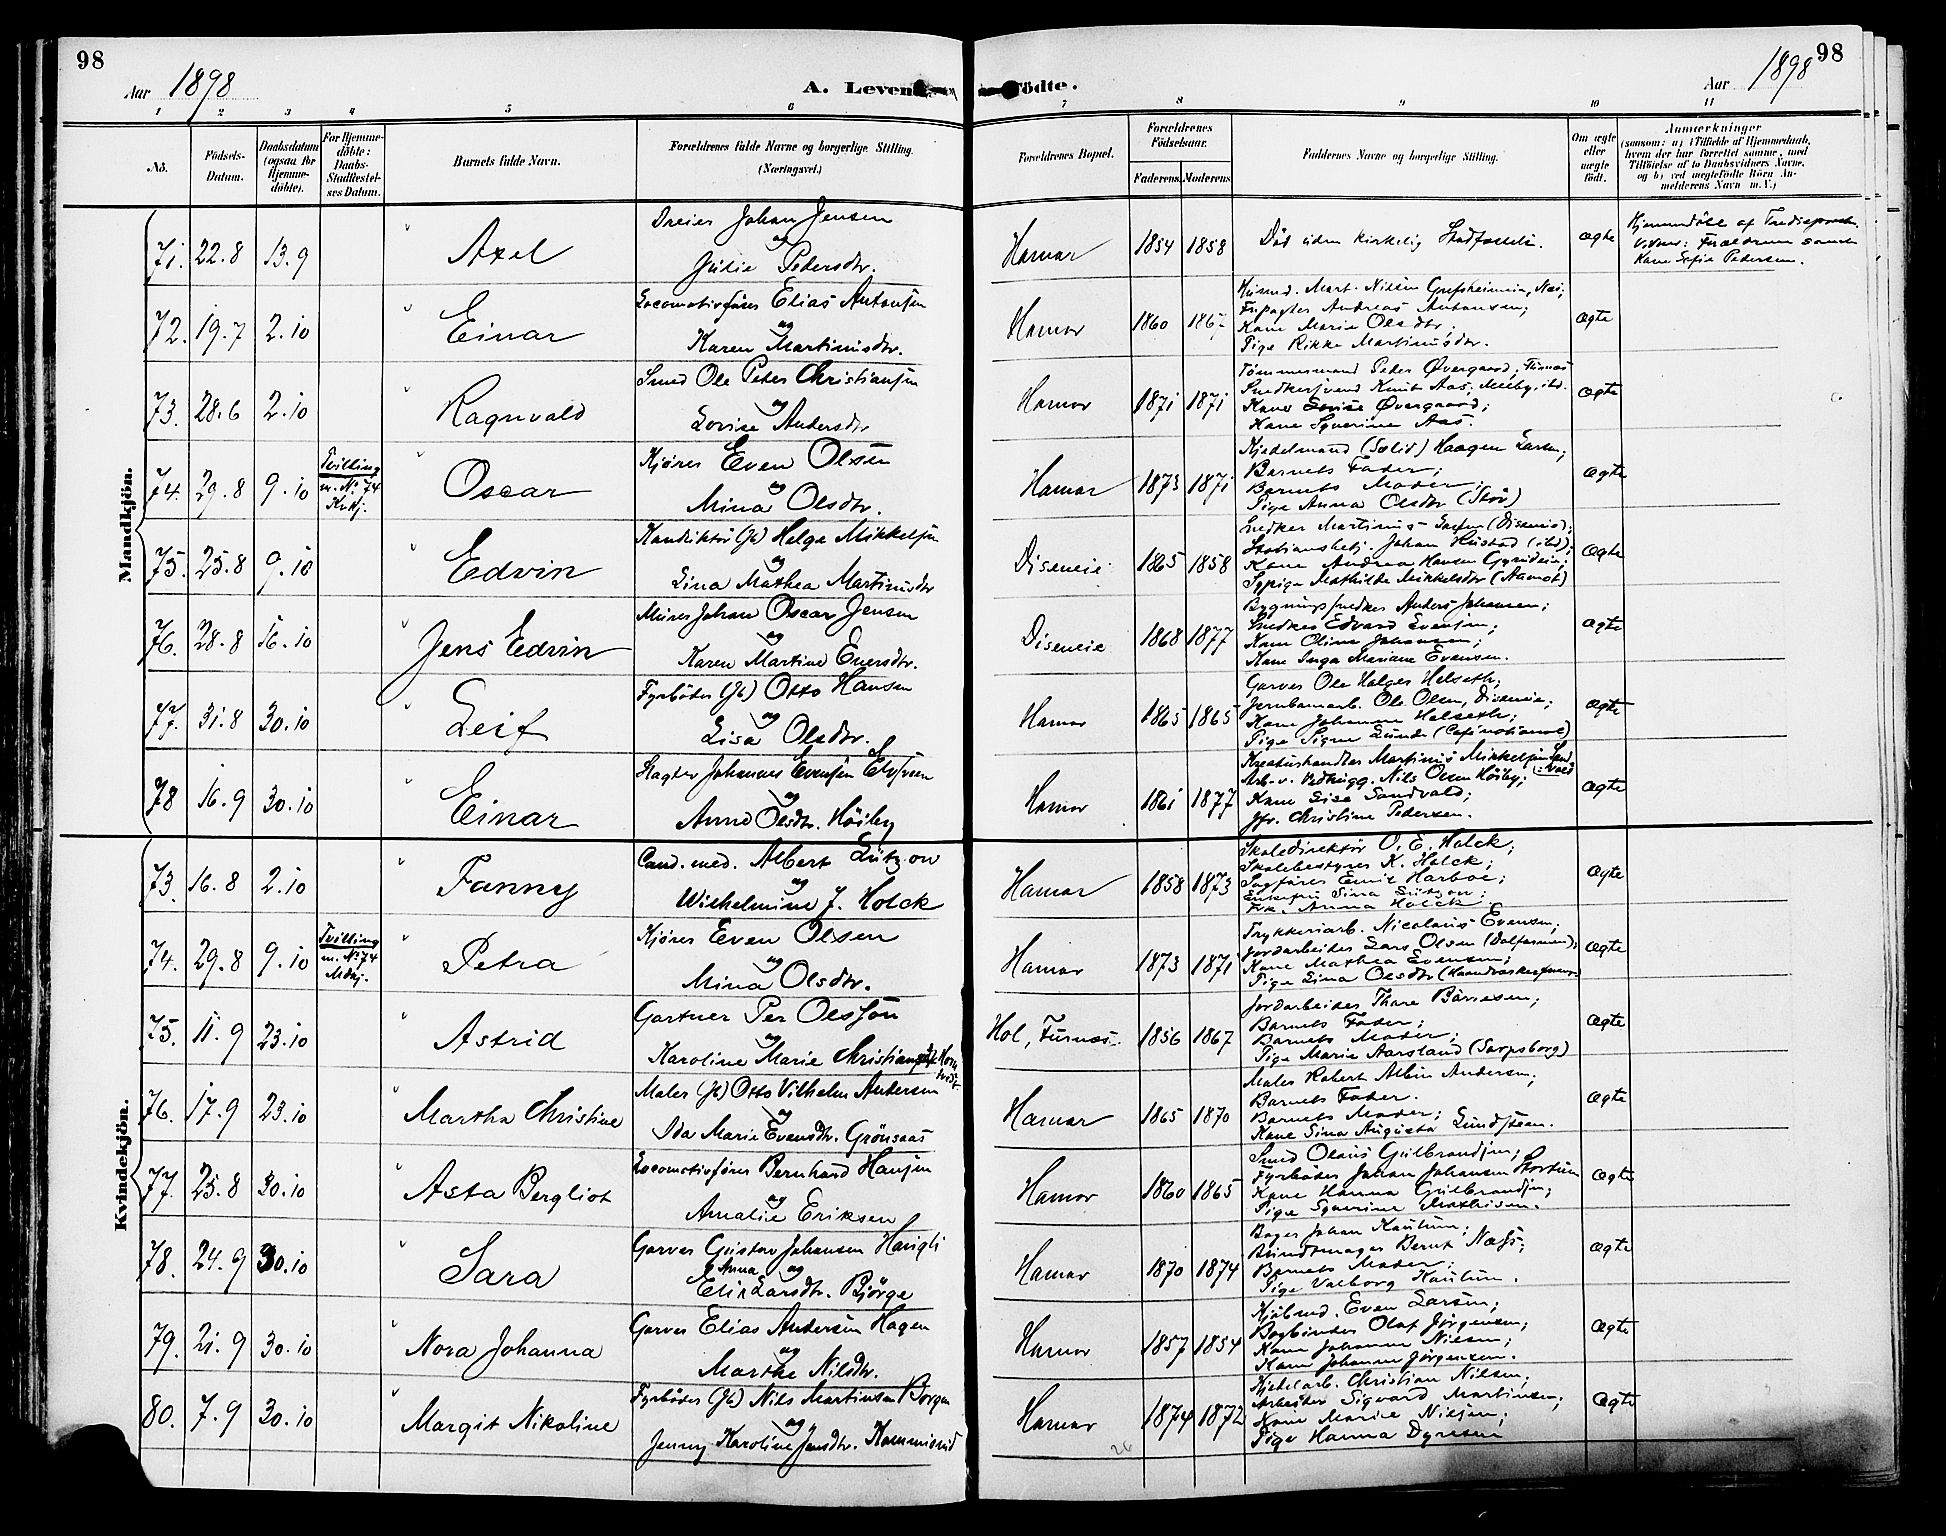 98
Aar 1898
A. Levende Födte.
98
Aar 1898
1 2 3 4 5 6 7 8 9 10 11
No.
Födsels-Datum.
Daabsdatum (ogsaa for Hjemme-döbte).
For Hjemme-döbte: Daabs-Stadfæstel-ses Datum.
Barnets fulde Navn.
Forældrenes fulde Navne og borgerlige Stilling. (Næringsvei.)
Forældrenes Bopæl.
Forældrenes Födselsaar.
Faderens. Moderens.
Faddernes Navne og borgerlige Stilling.
Om ægte eller uægte födt.
Anmærkninger
(saasom: a) i Tilfælde af Hjemmedaab, hvem der har forrettet samme, med Tilföielse af to Daabsvidners Navne, og b) ved uægtefödte Börn An-melderens Navn m. V.)
Mandkjön.
71. 22.8 13.9 Axel
Dreier Johan Jensen
og
Julie Pedersdtr.
Hamar 1854 1858
Död uden kirkelig Stadfæstelse.
Ægte
Hjemmedöbt af
Kone Sofie Pedersen.
72. 19.7 2.10 Einar
Locomotivförer Elias Antonsen
og
Karen Martinusdtr.
Hamar 1860
Andreas Antonsen;
Kone Marie Olsdtr;
Pige Rikke Martinusdtr.
Ægte
73. 28.6 2.10 Ragnvald
Smed Ole Peter Christiansen
og
Lovise Andersdtr
Hamar 1871 1871
Tömmermand Peder Övergaard, Furnæs
Snedkersvend Knut Aas, Melby, ibd.
Kone Lovise Övergaard;
Kone Syverine Aas.
Ægte
74. 29.8 9.10
Tvilling m. No 74 Kvkj.
Oscar
Kjörer Even Olsen
og
Mina Olsdtr.
Hamar 1873 1871
Kjedelmand (Solid) Haagen Larsen;
Barnets Fader;
Barnets Moder;
Pige Anna Olsdtr (Stör)
Ægte
75. 25.8 9.10 Edvin
Konduktör (Jb) Helge Mikkelsen
og
Lina Mathea Martinusdtr
Diseneie 1865 1858
Snedker Martinus (Diseneie);
Johan Hustad (ibd);
Kone Andrea Hansen
Sypige Mathilde Mikkelsdtr (Aamot)
Ægte
76. 28.8 16.10 Jens Edvin
Murer Johan Oscar Jensen
og
Karen Martine Enersdtr.
Diseneie 1868 1877
Bygningssnedker Anders Johansen;
Snedker Edvard Evensen;
Kone Oline Johansen;
Kone Inga Mariane Evensen.
Ægte
77. 31.8 30.10 Leif
Fyrböder (Jb) Otto Hansen
og
Lisa Olsdtr.
Hamar 1865 1865
Garver Ole Holger Helseth;
Jernbanearb. Ole Olsen, Diseneie;
Kone Johanne Helseth;
Pige Signe Lunde (Café national)
Ægte
78 16.9 30.10 Einar
Slagter Johannes Evensen
og
Anne Olsdtr. Höiby
Hamar 1861 1877
Kreaturhandler Martinus Mikkelsen Sandvold
Arb. v. Vedhugg. Nils Olsen Höiby;
Kone Lise Sandvold;
Jfr. Christine Pedersen.
Ægte
Kvindekjön.
73. 16.8 2.10 Fanny
Cand. med. Albert Lützow
og
Wilhelmine J. Holck
Hamar 1858 1873
Skoledirektör O. E. Holck;
Skolebestyrer K. Holck;
Sagförer Emil Harboe;
Enkefru Sina Lützow;
Frk. Anna Holck.
Ægte
74. 29.8 9.10
Tvilling m. No 74 Mdkj.
Petra
Kjörer Even Olsen
og
Mina Olsdtr.
Hamar 1873 1871
Trykkeriarb. Nicolaus Evensen;
Jordarbeider Lars Olsen (Dalfarmen);
Kone Mathea Evensen;
Pige Lina Olsdtr
Ægte
75. 11.9 23.10 Astrid
Gartner Per Olsson
og
Karoline Marie
Hol, Furnæs. 1856 1867
Jordarbeider Thore
Barnets Fader;
Barnets Moder;
Pige Marie Aarsland (Sarpsborg)
Ægte
76. 17.9 23.10 Martha Christine
Maler (Jb) Otto Vilhelm Andersen
og
Ida Marie Evensdtr. Grönsaas
Hamar 1865 1870
Maler Robert Albin Andersen;
Barnets Fader.
Barnets Moder;
Kone Lina Augusta Lundsteen.
Ægte
77. 25.8 30.10 Asta Bergliot
Locomotivförer Bernhard Hansen
og
Amalie Eriksen
Hamar 1860 1865
Smed Olaus Gulbrandsen;
Fyrböder Johan Johansen
Kone Hanna Gulbrandsen;
Pige Syverine Mathisen.
Ægte
78. 24.9 30.10 Sara
Garver Gustav Johansen Haugli
og
Anna Elise Larsdtr. Björge
Hamar 1870 1874
Bager Johan Kaulum;
Buntmager Bernt Næss;
Barnets Moder;
Pige Valborg Kaulum.
Ægte
79. 21.9 30.10 Nora Johanna
Garver Elias Andersen Hagen
og
Marthe Nilsdtr.
Hamar 1857 1854
Kjöbmd. Even Larsen;
Bogbinder Olaf Jörgensen;
Kone Johanne Nilsen;
Kone Johanne Jörgensen.
Ægte
80. 7.9 30.10 Margit Nikoline
Fyrböder (Jb) Nils Martinsen Borgen
og
Jenny Karoline Jensdtr.
Hamar 1874 1872
Kjedelarb. Christian Nilsen;
Arbeider Sigvard Martinsen;
Kone Marie Nilsen;
Pige Hanna Dyresen
Ægte